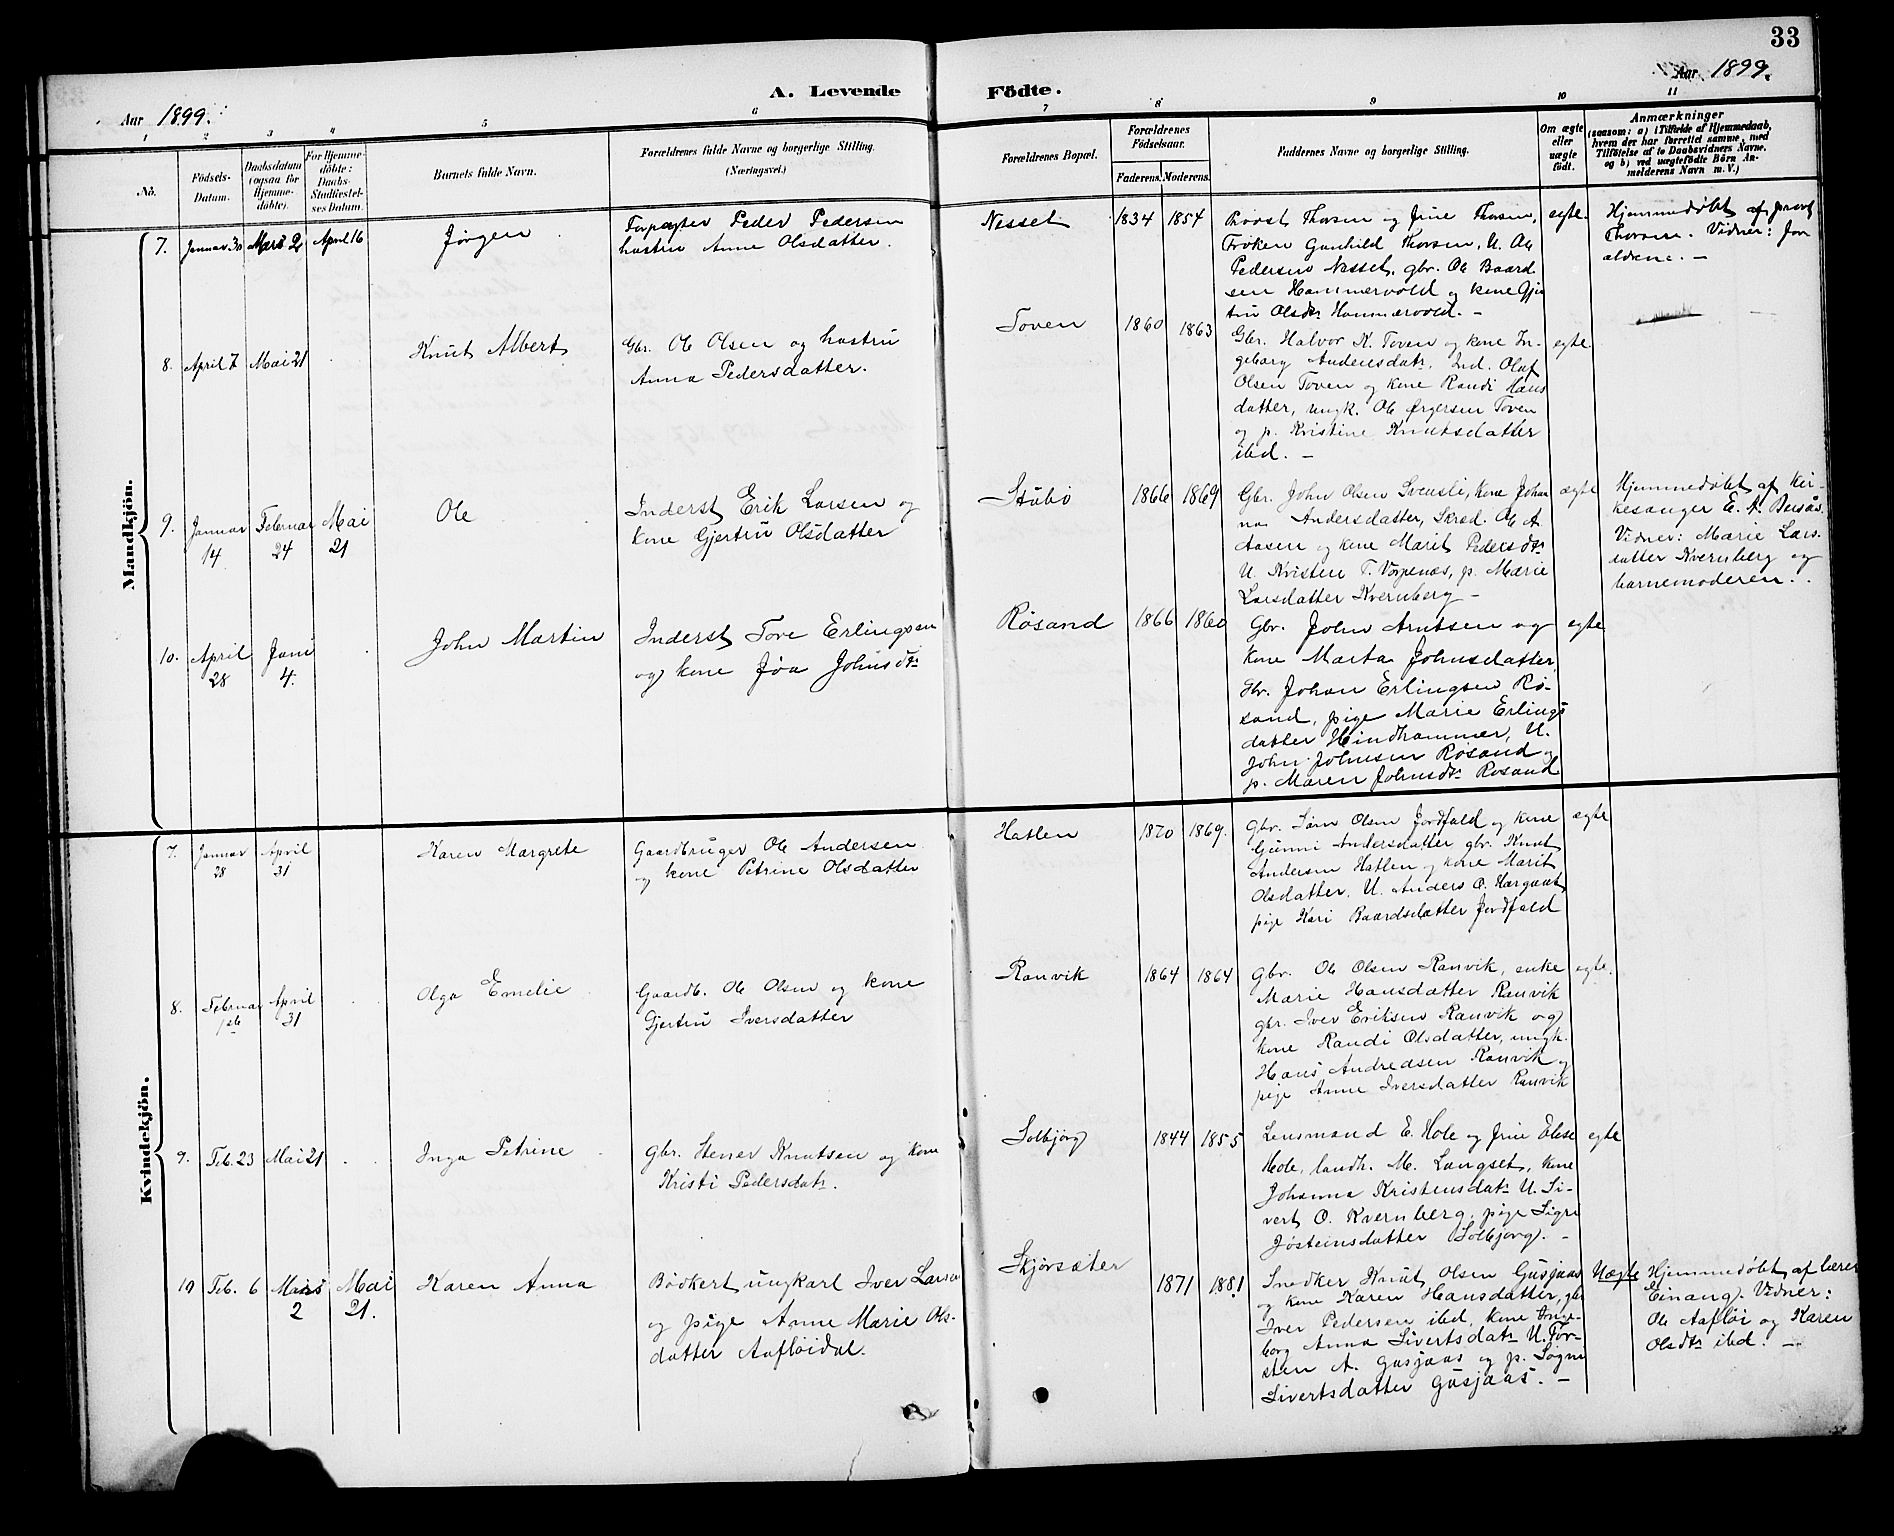 33
Aar 1899.
A. Levende
Födte.
Aar 1899.
1 2 3 4 5 6 7 8 9 10 11
No.
Födsels-Datum.
Daabsdatum (ogsaa for Hjemme-döbte).
For Hjemme-döbte: Daabs-Stadfæstel-ses Datum.
Barnets fulde Navn.
Forældrenes fulde Navne og borgerlige Stilling.
(Næringsvei.)
Forældrenes Bopæl.
Forældrenes Födselsaar.
Faderens. Moderens.
Faddernes Navne og borgerlige Stilling.
Om ægte eller uægte födt.
Anmærkninger
(saasom: a) i Tilfælde af Hjemmedaab,
hvem der har forrettet samme, med
Tilföielse af to Daabsvidners Navne,
og b) ved uægtefödte Börn An-
melderens Navn m. V.)
Mandkjön.
7. Januar 30 Mars 2 April 16 Jørgen
Forpagter Peder Pedersen
hustru Anne Olsdatter.
Nesset 1834 1854
Provst Thorsen og frue Thorsen,
Frøken Gunhild Thorsen, U. Ole
Pedersen Nesset, gbr. Ole Baard
sen Hammervold og kone Gjer
tru Olsdr Hammervold. –
egte.
Hjemmedøbt af provst
Thorsen. Vidner: for
ældrene. –
8. April 7 Mai 21 Knut Albert
Gbr. Ole Olsen og hustru
Anna Pedersdatter.
Toven 1860 1863
Gbr. Halvor K. Toven og kone In-
geborg Andersdatr. Ind. Olaf
Olsen Toven og kone Randi Hans
datter, ungk. Ole Ørgersen Toven
og p. Kristine Knutsdatter
ibd. –
egte.
9. Januar 14 Februar 24 Mai 21 Ole
Inderst Erik Larsen og
kone Gjertru Olsdatter
Stubø 1866 1869
Gbr. John Olsen Svensli, kone Johan
na Andersdatter, Skred. Ole A
Aasen og kone Marit Pedersdtr
U. Kristen T. Vorpenæs, p. Marie
Larsdatter Kvernberg –
egte
Hjemmedøbt af kir-
kesanger E. A. Bersås.
Vidner: Marie Lars-
datter Kvernberg og
barnemoderen.
10. April 28 Juni 4. John Martin
Inderst Tore Erlingsen
og kone Jøa Johnsdtr
Røsand 1866 1860
Gbr. John Arntsen og
kone Marta Johnsdatter,
Gbr. Johan Erlingsen Rø-
sand, pige Marie Erlings
datter Hindhammer, U.
John Johnsen Røsand og
p. Maren Johnsdtr Røsand
egte
Kvindekjön.
7. Januar 28 April 31 Karen Margrete
Gaardbruger Ole Andersen
og kone Petrine Olsdatter
Hatlen 1870 1869.
Gbr. Jørn Olsen Jordfald og kone
Gunni Andersdatter gbr. Knut
Andersen Hatlen og kone Marit
Olsdatter, U. Anders O. Hargaut,
pige Kari Baardsdatter Jordfald
egte
8. Februar 1ste April 31 Olga Emelie
Gaardb. Ole Olsen og kone
Gjertru Iversdatter
Ranvik 1864 1864
Gbr. Ole Olsen Ranvik, enke
Marie Hansdatter Ranvik
gbr. Iver Eriksen Ranvik og
kone Randi Olsdatter, ungk.
Hans Andreasen Ranvik og
pige Anne Iversdatter Ranvik
egte.
9. Feb. 23 Mai 21 Inga Petrine
Gbr. Stener Knutsen og kone
Kristi Pedersdatr.
Solbjørg 1844 1855
Lensmand E. Hole og frue Elise
Hole, landh. M. Langset, kone
Johanna Kristensdatr U. Si-
vert O. Kvernberg, pige Sigri
Jøsteinsdatter Solbjørg. –
egte
10 Feb. 6 Mars 2 Mai 21. Karen Anna
Bødker ungkarl Iver Larsen
og pige Anne Marie Ols-
datter Aafløidal.
Skjørsæter 1871 1881
Snedker Knut Olsen Gusjaas
og kone Karen Hansdatter, gbr
Iver Pedersen ibd, kone Inge-
borg Anna Sivertsdatr U. Tor-
sten A. Gusjaas og p. Søgni
Sivertsdatter Gusjaas. –
Uægte
Hjemmedøbt af lærer
Einang. Vidner:
Ole Aafløi og Karen
Olsdtr ibd. –